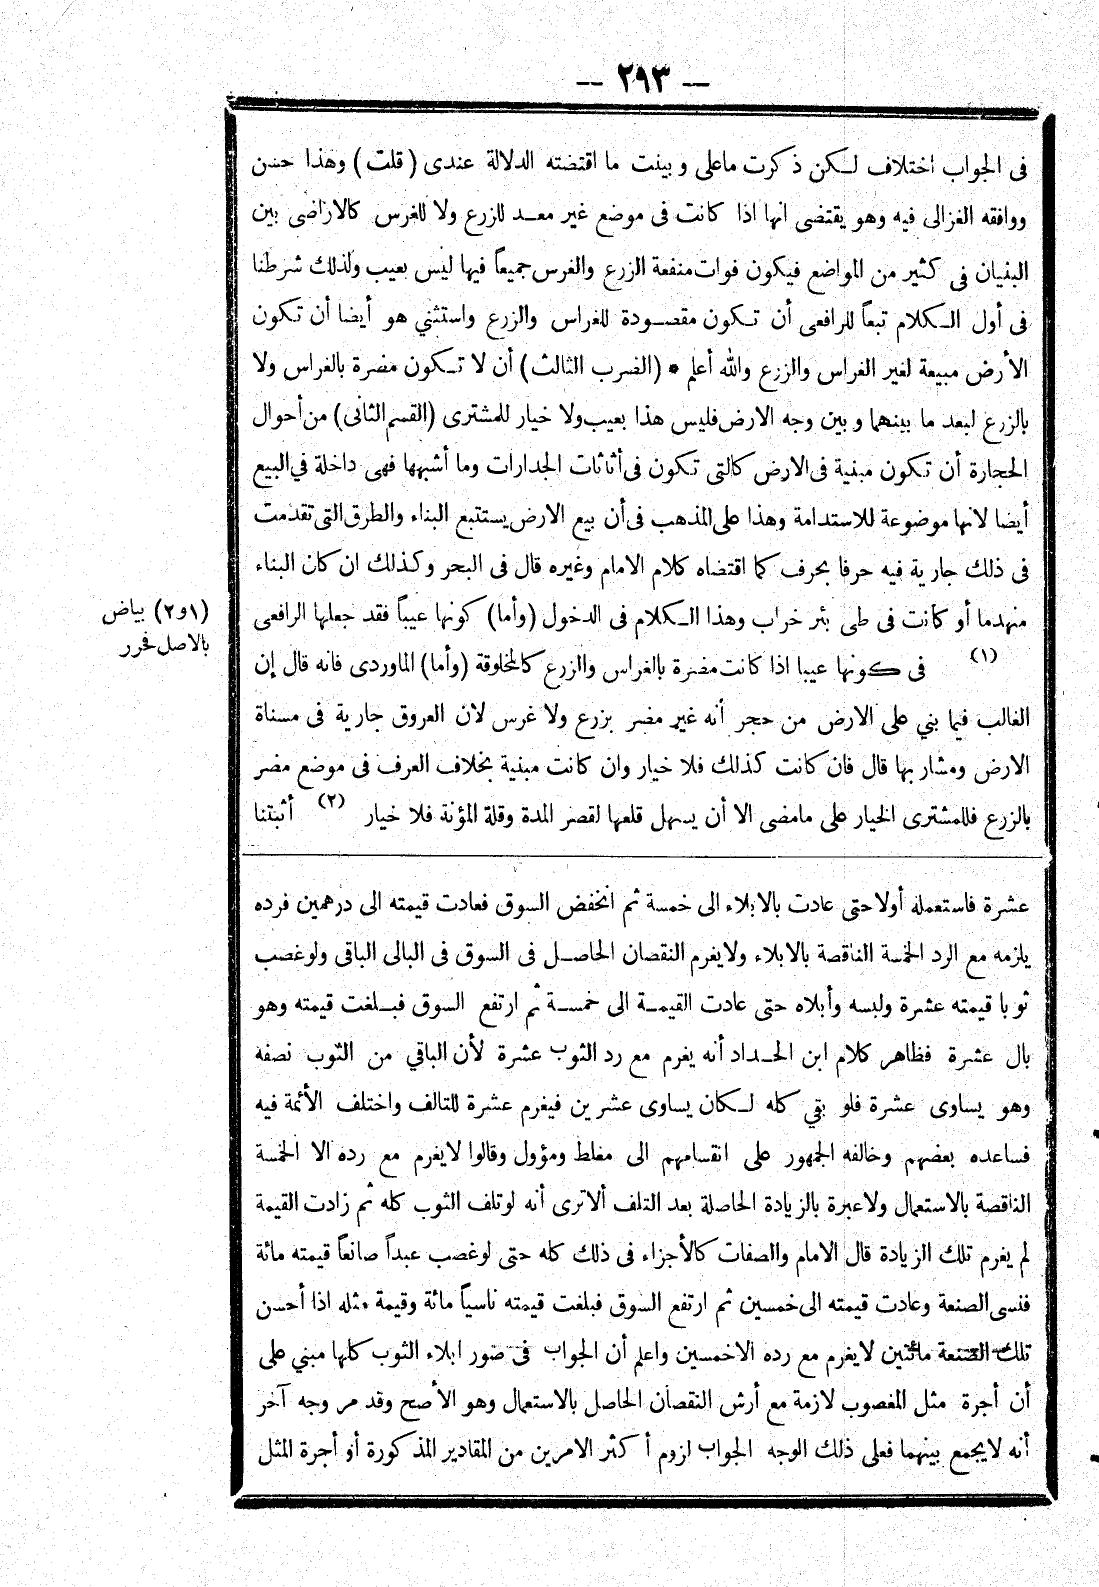 -- ٢٩٣ --
فى الجواب اختلاف لكن ذكرت ماعلى وبينت ما اقتضته الدلالة عندى (قلت) وهذا حسن
ووافقه الغزالى فيه وهو يقتضى انها اذا كانت فى موضع غير معد للزرع ولا للغرس كالاراضى بين
البنيان فى كثير من المواضع فيكون فوات منفعة الزرع والغرس جميعاً فيها ليس بعيب ولذلك شرطنا
فى أول الكلام تبعاً للرافعى أن تكون مقصودة للغراس والزرع واستثني هو أيضا أن تكون
الأرض مبيعة لغير الغراس والزرع والله أعلم * (الضرب الثالث) أن لا تكون مضرة بالغراس ولا
بالزرع لبعد ما بينهما وبين وجه الارض فليس هذا بعيب ولا خيار للمشترى (القسم الثانى) من أحوال
الحجارة أن تكون مبنية فى الارض كالتى تكون فى أثاثات الجدارات وما أشبهها فهى داخلة في البيع
أيضا لانها موضوعة للاستدامة وهذا على المذهب فى أن بيع الارض يستتبع البناء والطرق التى تقدمت
فى ذلك جارية فيه حرفا بحرف كما اقتضاه كلام الامام وغيره قال فى البحر وكذلك ان كان البناء
منهدما أو كانت فى طى بئر خراب وهذا الكلام فى الدخول (وأما) كونها عيباً فقد جعلها الرافعى
(١) فى كونها عيبا اذا كانت مضرة بالغراس والزرع كالمخلوقة (وأما) الماوردى فانه قال إن
الغالب فيما بني على الارض من حجر أنه غير مضر بزرع ولا غرس لان العروق جارية فى مسناة
الارض ومشاربها قال فان كانت كذلك فلا خيار وان كانت مبنية بخلاف العرف فى موضع مضر
بالزرع فللمشترى الخيار على مامضى الا أن يسهل قلعها لقصر المدة وقلة المؤنة فلا خيار (٢) أثبتنا
(١و٢) بياض
بالاصل فحرر
عشرة فاستعمله أولا حتى عادت بالابلاء الى خمسة ثم انخفض السوق فعادت قيمته الى درهمين فرده
يلزمه مع الرد الخمسة الناقصة بالابلاء ولايغرم النقصان الحاصل فى السوق فى البالى الباقى ولوغصب
ثوبا قيمته عشرة ولبسه وأبلاه حتى عادت القيمة الى خمسة ثم ارتفع السوق فبلغت قيمته وهو
بال عشرة فظاهر كلام ابن الحداد أنه يغرم مع رد الثوب عشرة لأن الباقي من الثوب نصفه
وهو يساوى عشرة فلو بقي كله لكان يساوى عشرين فيغرم عشرة للتالف واختلف الأئمة فيه
فساعده بعضهم وخالفه الجمهور على انقسامهم الى مغلط ومؤول وقالوا لايغرم مع رده الا الخمسة
الناقصة بالاستعمال ولاعبرة بالزيادة الحاصلة بعد التلف ألاترى أنه لوتلف الثوب كله ثم زادت القيمة
لم يغرم تلك الزيادة قال الامام والصفات كالأجزاء فى ذلك كله حتى لوغصب عبداً صانعاً قيمته مائة
فنسى الصنعة وعادت قيمته الى خمسين ثم ارتفع السوق فبلغت قيمته ناسياً مائة وقيمة مثله اذا أحسن
تلك الصنعة مائتين لايغرم مع رده الاخمسين واعلم أن الجواب فى صور ابلاء الثوب كلها مبني على
أن أجرة مثل المغصوب لازمة مع أرش النقصان الحاصل بالاستعمال وهو الأصح وقد مر وجه آخر
أنه لايجمع بينهما فعلى ذلك الوجه الجواب لزوم أكثر الامرين من المقادير المذكورة أو أجرة المثل